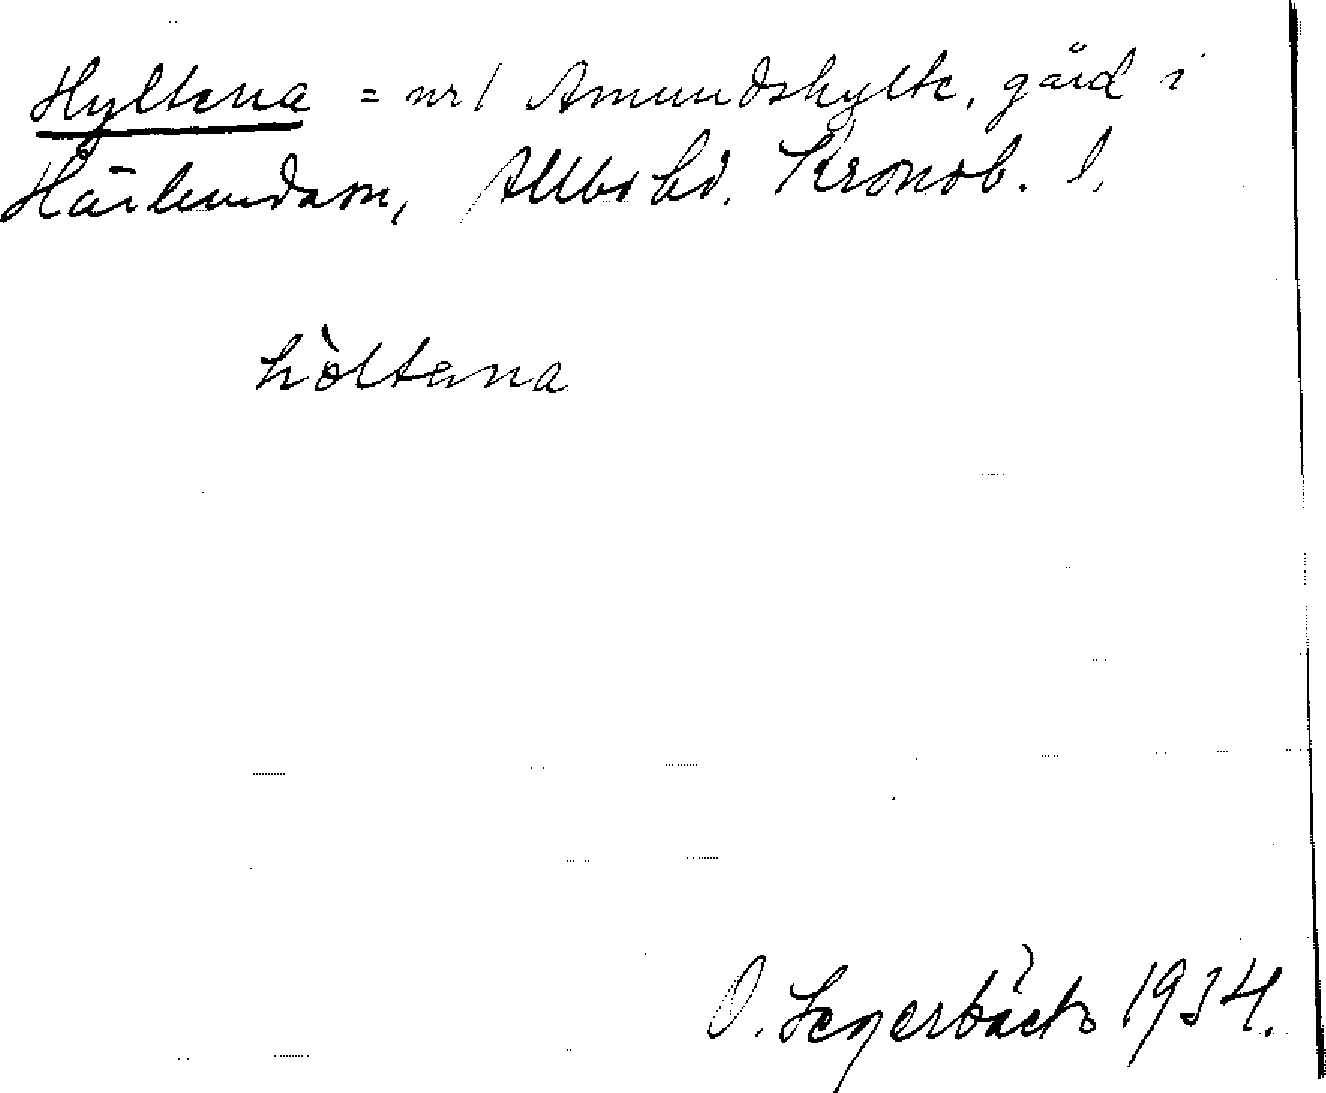 Hyltena = nr 1 Amundshylte, gård i
Härlundasn, Allbo hd. Kronob. l.
hòltena
O. Segerbäck 1934.